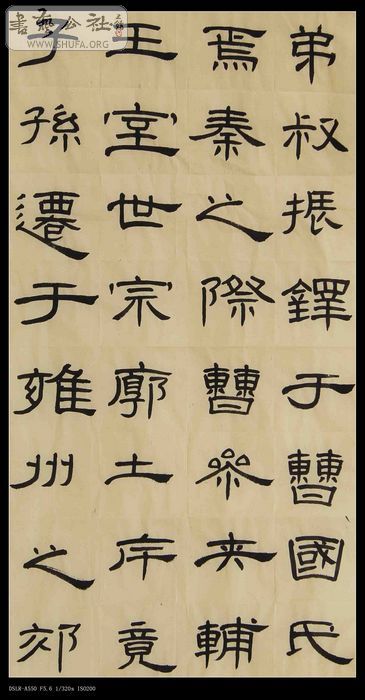 弟叔振鐸于曹國氏
焉秦之際曹參夾輔
王室世宗廓土斥竟
子孫遷于雍州之郊
書法公社
WWW.SHUFA.ORG
DSLR-A550 F5.6 1/320s ISO200